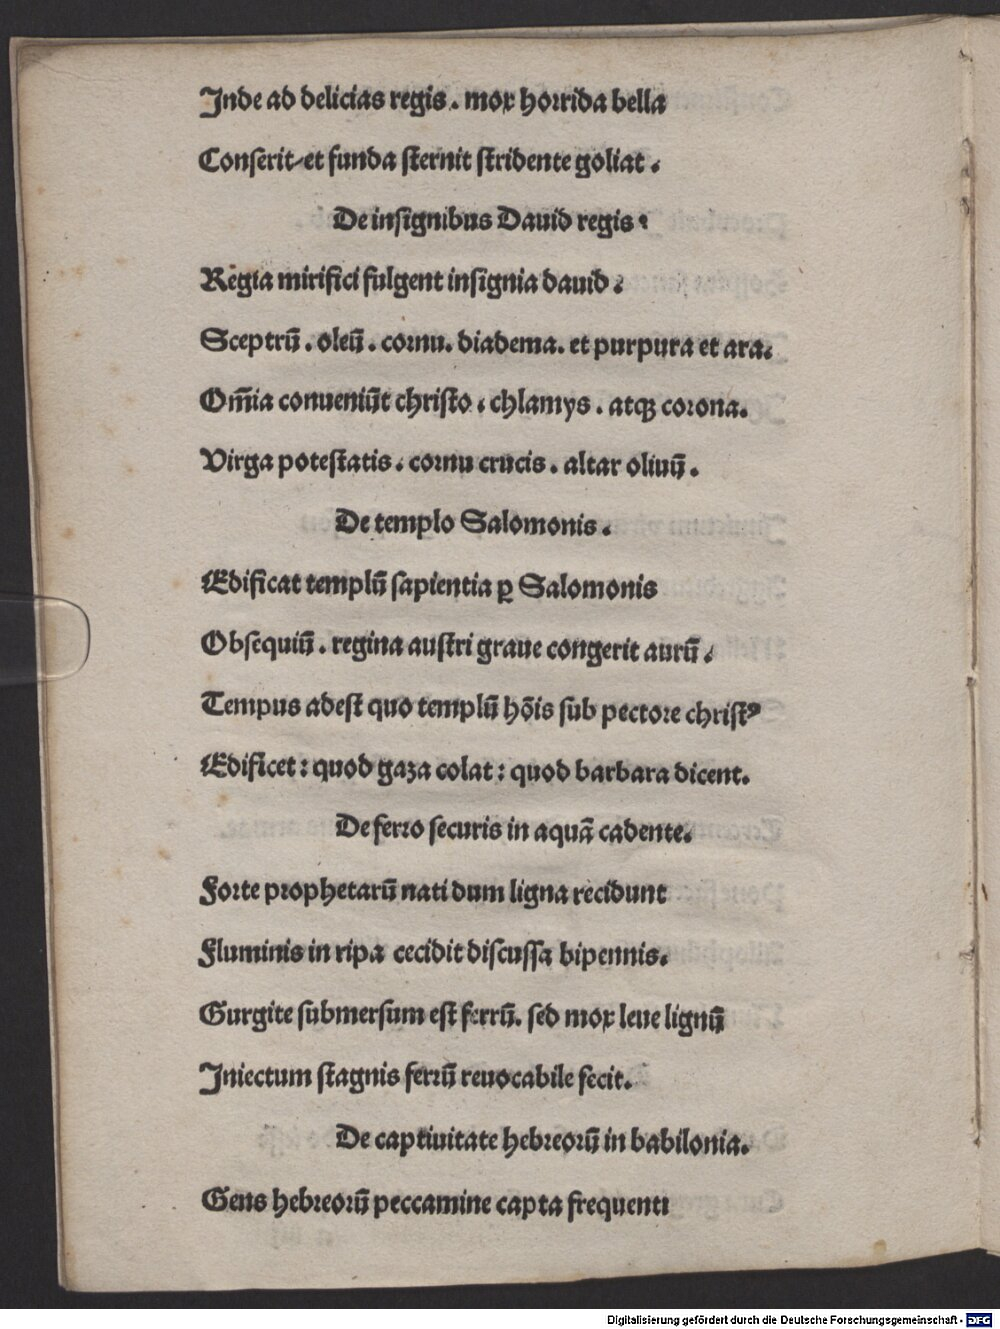 Inde ad delicias regis . mox horrida bella
Conserit-et funda sternit stridente goliat .
De insignibus Dauid regis .
Regia mirifici fulgent insignia dauid .
Sceptrū . oleū . cornu . diadema . et purpura et ara.
Om̄ia conueniūt christo . chlamys . atqꝫ corona.
Virga potestatis . cornu crucis . altar oliuū .
De templo Salomonis .
Edificat templū sapientia ꝑ Salomonis
Obsequiū . regina austri graue congerit aurū .
Tempus adest quo templū hōis sub pectore christꝰ
Edificet : quod gaza colat : quod barbara dicent.
De ferro securis in aquā cadente.
Forte prophetarū nati dum ligna recidunt
Fluminis in ripa cecidit discussa bipennis.
Gurgite submersum est ferrū. sed mox leue lignū
Iniectum stagnis ferrū reuocabile fecit.
De captiuitate hebreorū in babilonia.
Gens hebreorū peccamine capta frequenti
Digitalisierung gefördert durch die Deutsche Forschungsgemeinschaft - DFG